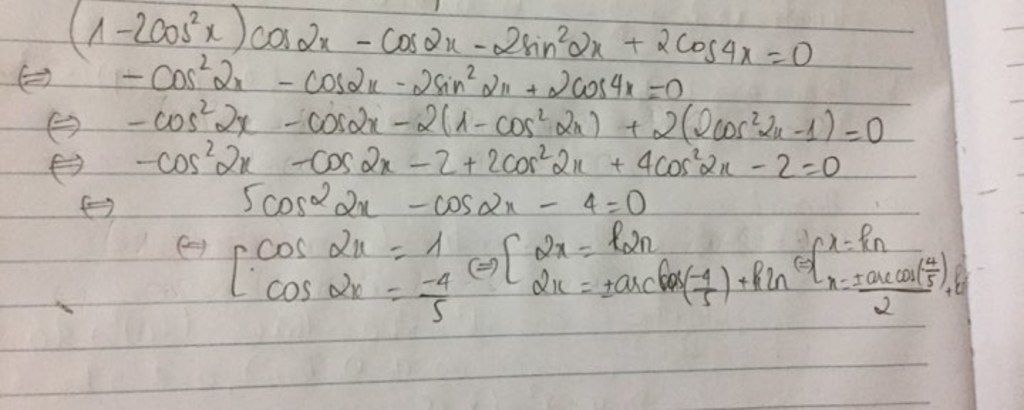 (1-2cos²x)cos2x - cos2x - 2sin²2x + 2cos4x = 0
⇔ -cos²2x - cos2x - 2sin²2x + 2cos4x = 0
⇔ -cos²2x - cos2x - 2(1-cos²2x) + 2(2cos²2x-1) = 0
⇔ -cos²2x - cos2x - 2 + 2cos²2x + 4cos²2x - 2 = 0
⇔ 5cos²2x - cos2x - 4 = 0
⇔ [cos 2x = 1 ⇔ [2x = k2π ⇔ [x = kπ
cos 2x = -4/5 2x = ±arccos(-4/5) + k2π x = ±arccos(4/5)/2 + k